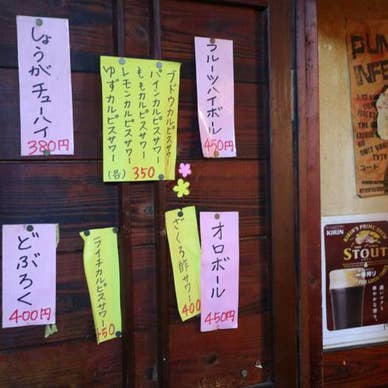 しょうがチューハイ
380円
ブドウカルピスサワー
パインカルピスサワー
ももカルピスサワー
レモンカルピスサワー
ゆずカルピスサワー
(各) 350
フルーツハイボール
450円
どぶろく
400円
ライチカルピスサワー
ざくろ酢サワー
400
オロボール
450円
KIRIN
STOUT
一番搾り